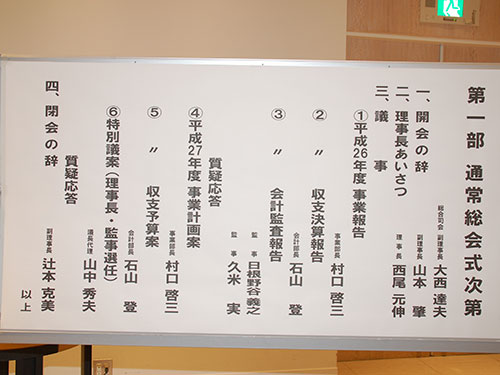 第一部 通常総会式次第
総合司会 副理事長 大西 達夫
一、開会の辞 副理事長 山本 肇
二、理事長あいさつ 理事長 西尾 元伸
三、議 事
①平成26年度 事業報告 事業部長 村口 啓三
② 〃 収支決算報告 会計部長 石山 登
③ 〃 会計監査報告 監事 日根野谷 義之
監事 久米 実
質疑応答
④平成27年度 事業計画案 事業部長 村口 啓三
⑤ 〃 収支予算案 会計部長 石山 登
⑥特別議案(理事長・監事選任) 議長代理 山中 秀夫
質疑応答
四、閉会の辞 副理事長 辻本 克美
以上